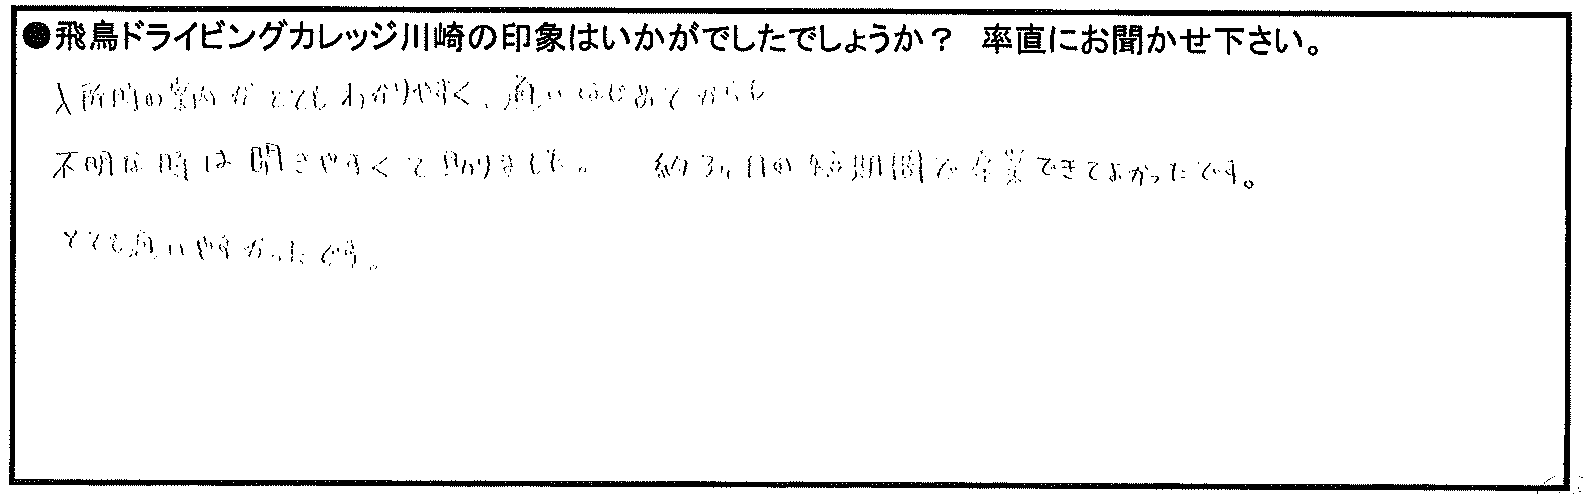 ●飛鳥ドライビングカレッジ川崎の印象はいかがでしたでしょうか？ 率直にお聞かせ下さい。
入所時の案内がとてもわかりやすく、通いはじめてからも
不明な時は聞きやすくて助かりました。 約3ヶ月の短期間で卒業できてよかったです。
とても通いやすかったです。